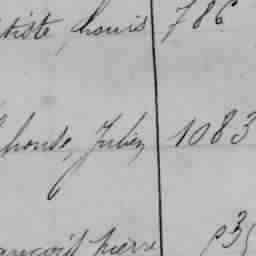 tiste, Louis 786
phonse, Julien 1083
ançois pierre 93